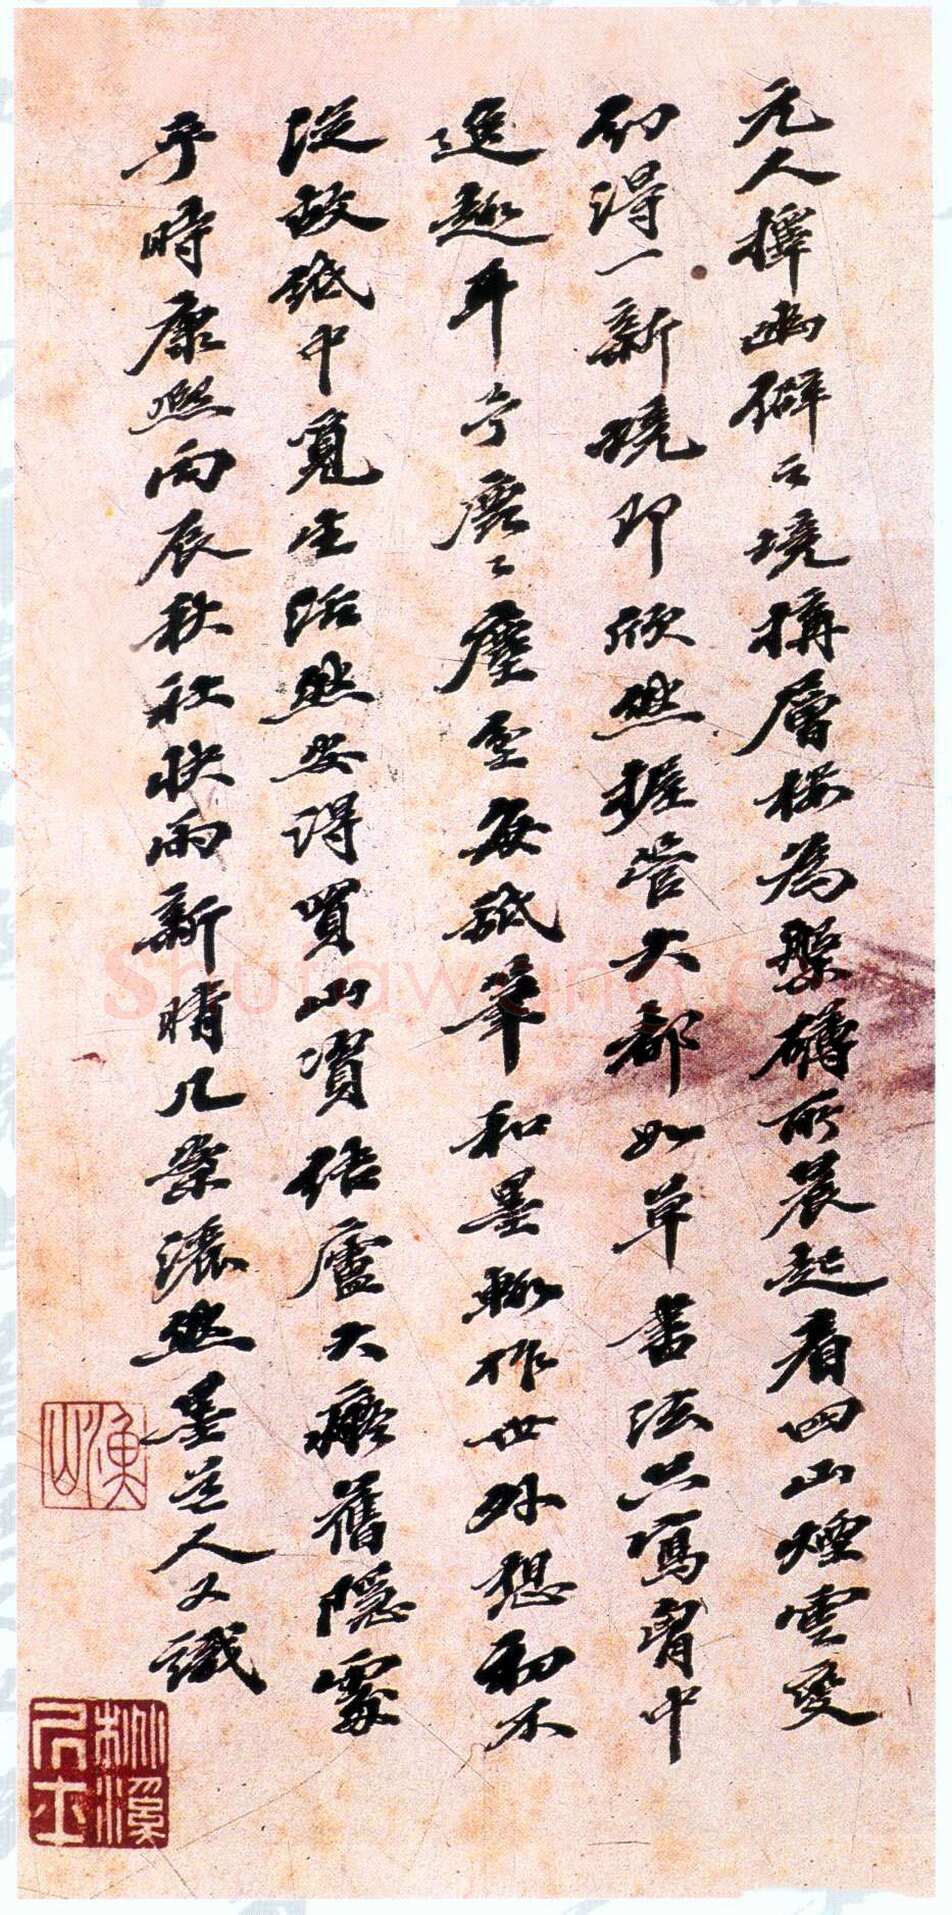 元人擇幽僻之境搆層樓為槃礴所晨起看四山煙雲變
幻得一新境即欣然握管大都如草書法只寫胷中
逸趣耳予鹿鹿塵壒每砥筆和墨輒作世外想初不
從故紙中覓生活然安得買山資結廬大癡舊隱處
乎時康熙丙辰秋社快雨新晴几案灑然墨井道人又識
漁山
桃溪居士
Shufawang.c